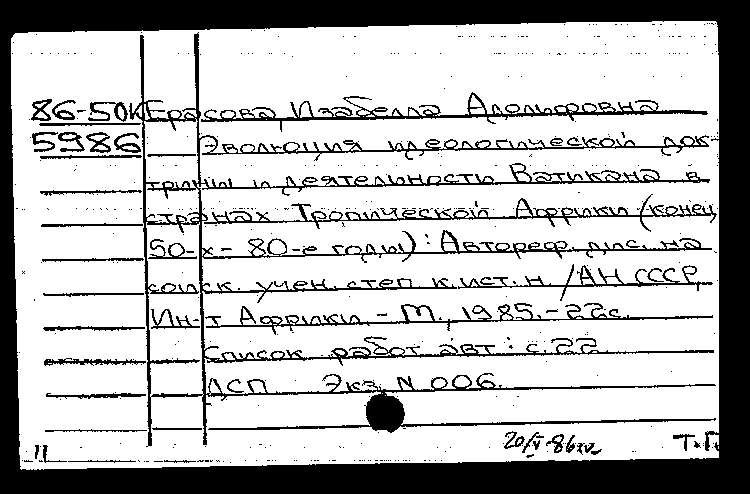 86-50К Ерасова, Изабелла Адольфовна
5986 Эволюция идеологической док-
трины и деятельности Ватикана в
странах Тропической Африки (конец
50-х - 80-е годы) : Автореф. дис. на
соиск. учен. степ к. ист. н. / АН СССР,
Ин-т Африки. - М., 1985. - 22с.
Список работ авт : с. 22
ДСП Экз. N 006.
11 20/V-86 Т.Г.